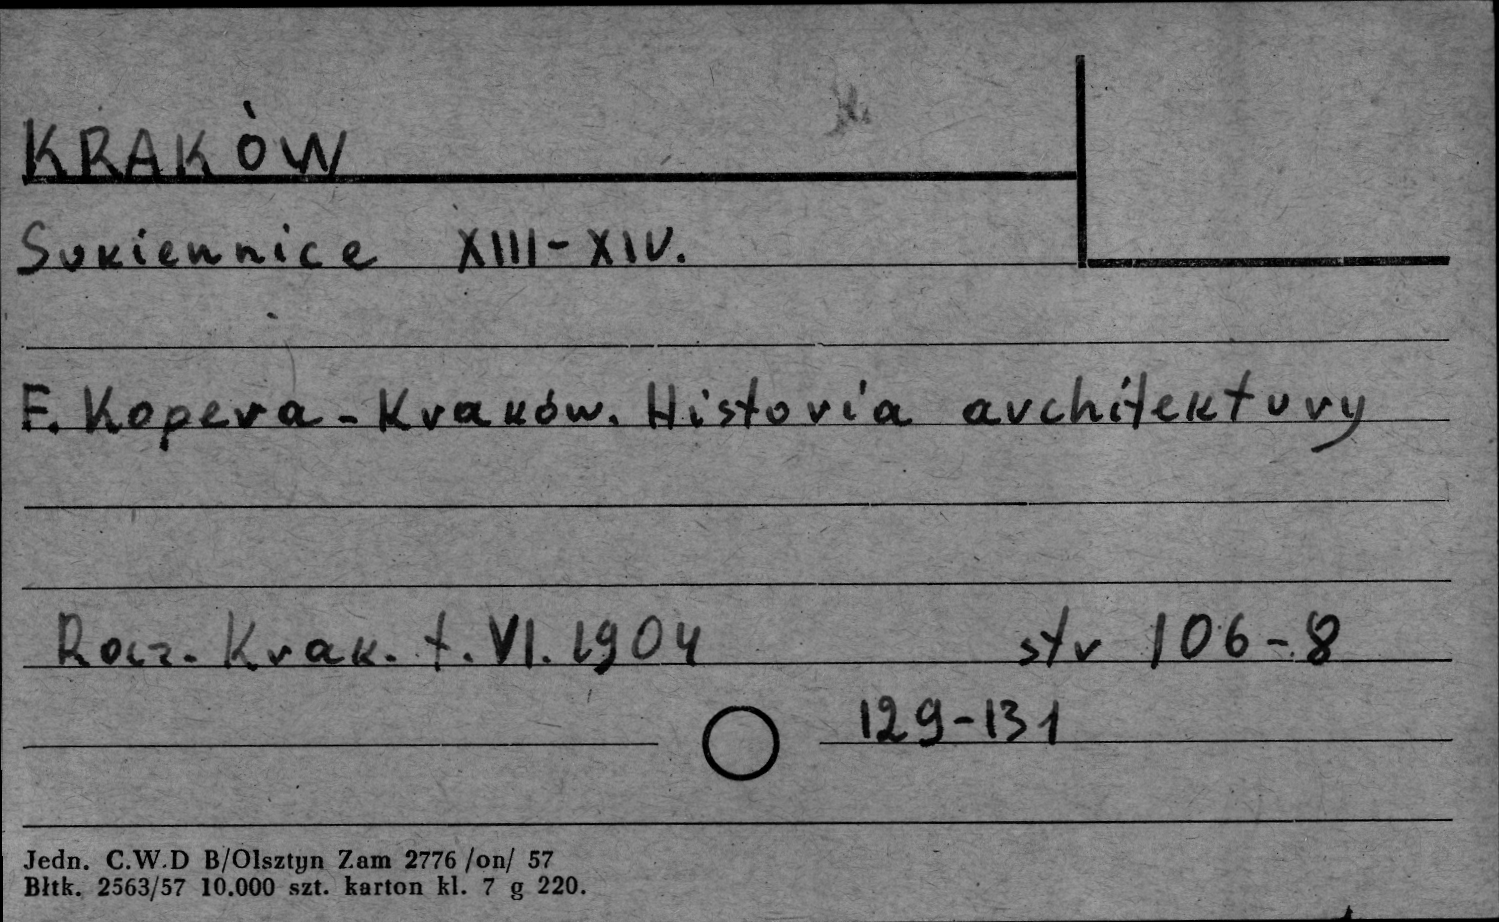 KRAKÓW
Sukiennice XIII-XIV.
F. Kopera - Kraków. Historia architektury
Rocz. Krak. t. VI. 1904 str 106-8
129-131
Jedn. C.W.D B/Olsztyn Zam 2776 /on/ 57
Błtk. 2563/57 10.000 szt. karton kl. 7 g 220.